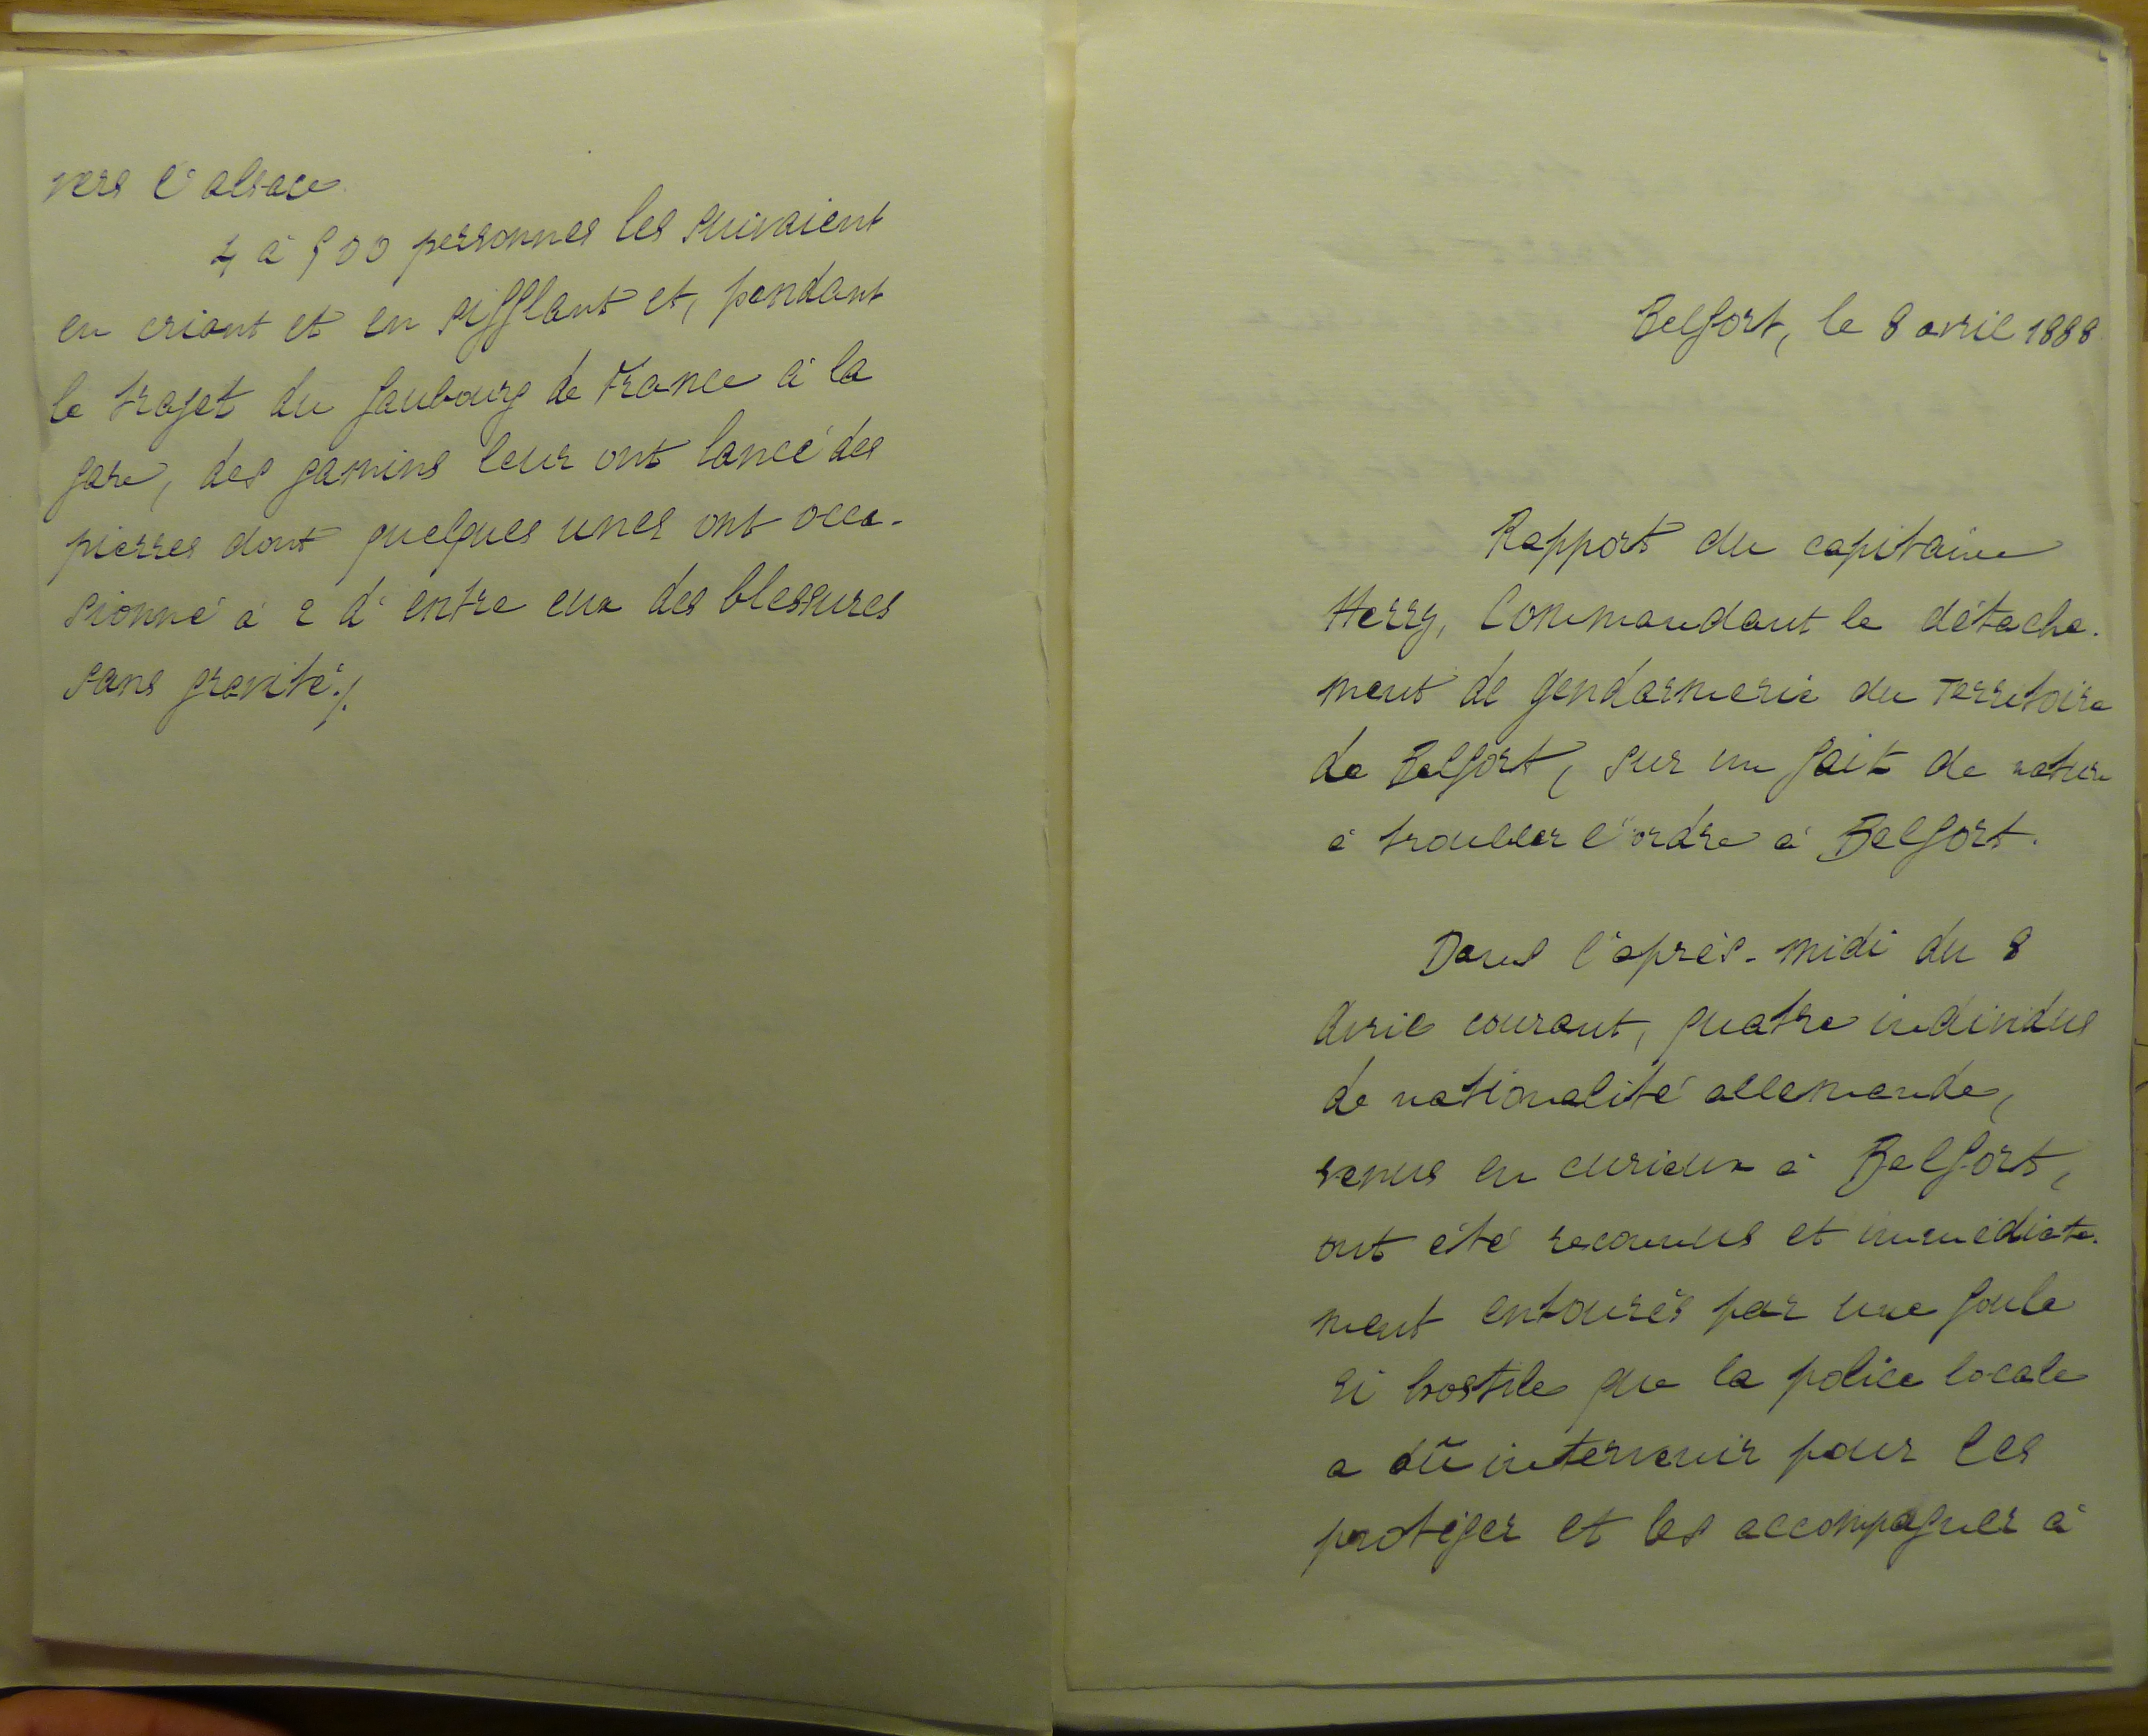 vers l'alsace
4 à 500 personnes les suivaient
en criant et en sifflant et, pendant
le trajet du faubourg de France à la
gare, des gamins leur ont lancé des
pierres dont quelques unes ont occa-
sionné à 2 d'entre eux des blessures
sans gravité ./.
Belfort, le 8 avril 1888
Rapport du capitaine
Herry, Commandant le détache-
ment de gendarmerie du Territoire
de Belfort, sur un fait de nature
à troubler l'ordre à Belfort.
Dans l'après-midi du 8
avril courant, quatre individus
de nationalité allemande,
venus en curieux à Belfort,
ont été reconnus et immédiate-
ment entourés par une foule
si hostile que la police locale
a dû intervenir pour les
protéger et les accompagner à